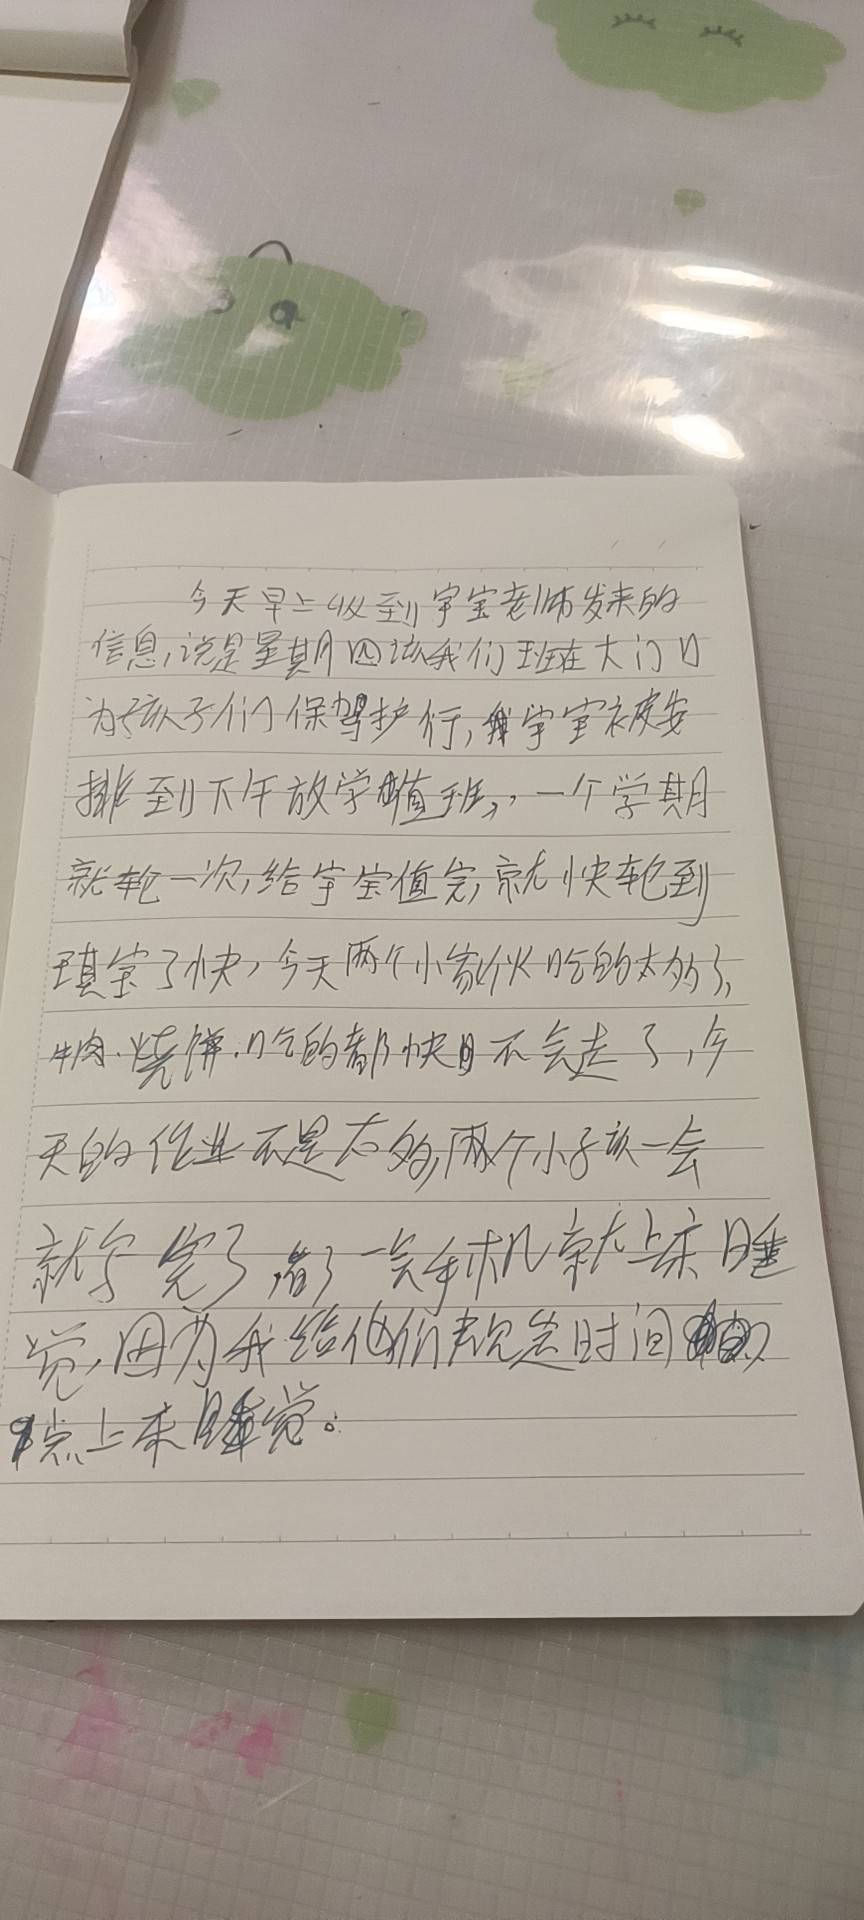 今天早上收到宇宝老师发来的
信息,说是星期四该我们班在大门口
为孩子们保驾护行,宇宝被安
排到下午放学值班,一个学期
就轮一次,给宇宝值完,就快轮到
琪宝了快,今天两个小家伙吃的太多了,
牛肉、烧饼、吃的都快不会走了,今
天的作业不是太多,两个小孩一会
就写完了看了一会手机就上床睡
觉,因为我给他们规定时间
9点上床睡觉。